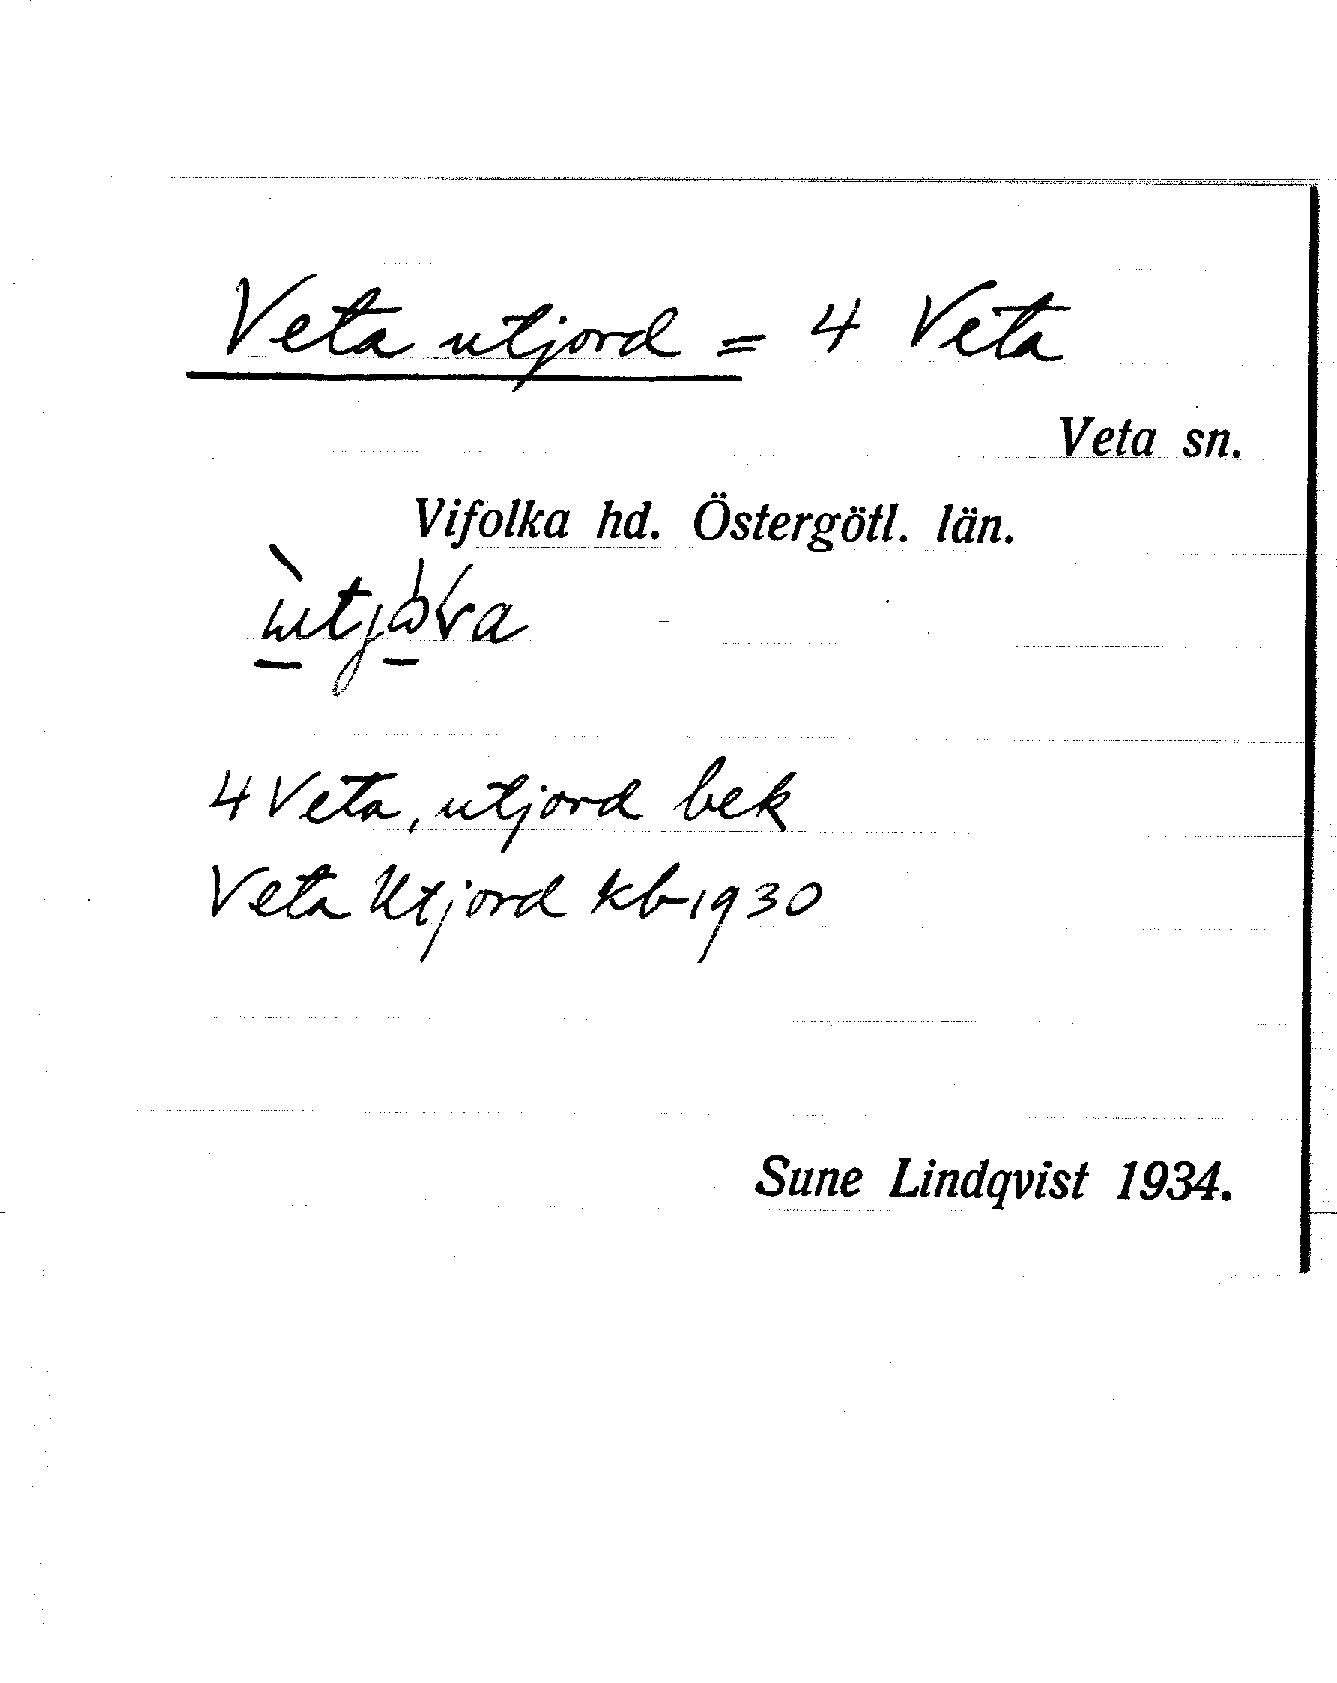 Veta utjord = 4 Veta
Veta sn.
Vifolka hd. Östergötl. län.
4 Veta, utjord bek
Veta Utjord kb 1930
Sune Lindqvist 1934.